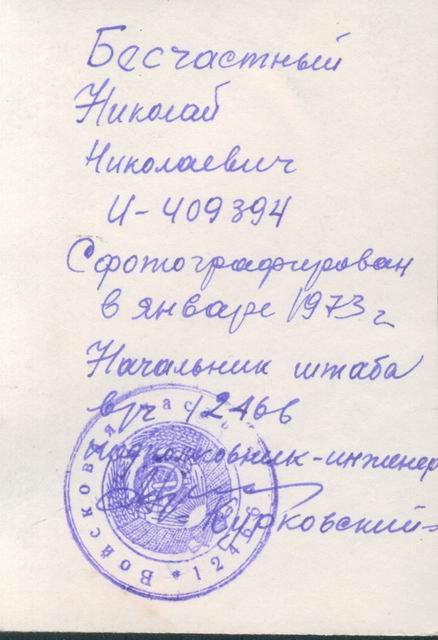 Бесчастный
Николай
Николаевич
И-409394
Сфотографирован
в январе 1973 г.
Начальник штаба
в/ч 12466
подполковник-инженер
Курковский
Войсковая часть * 12466 *